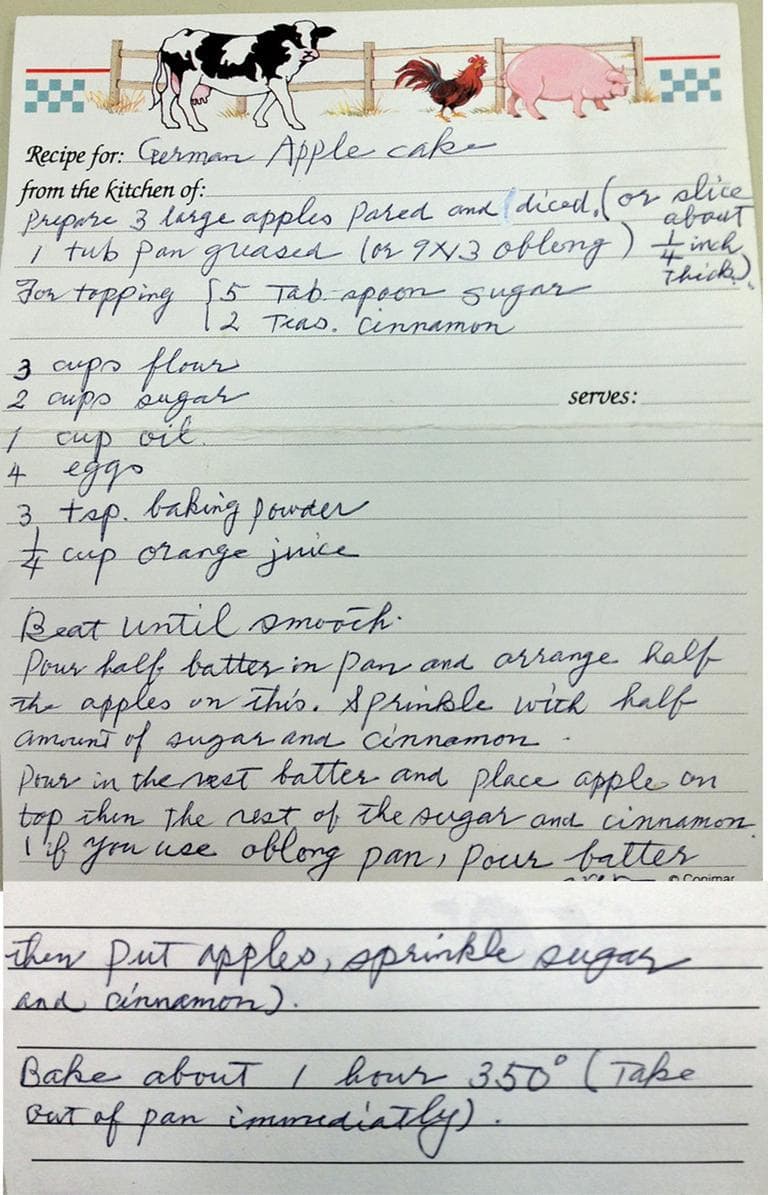 Recipe for: German Apple cake
from the kitchen of:
Prepare 3 large apples pared and diced. (or slice about 1/4 inch thick).
1 tub pan greased (or 9x13 oblong)
For topping { 5 Tab. spoon sugar
2 Teas. Cinnamon
3 cups flour
2 cups sugar
serves:
1 cup oil
4 eggs
3 tsp. baking powder
1/4 cup orange juice
Beat until smooth.
Pour half batter in pan and arrange half
the apples on this. Sprinkle with half
amount of sugar and cinnamon.
Pour in the rest batter and place apple on
top then the rest of the sugar and cinnamon.
(if you use oblong pan, pour batter
© Conimar
then put apples, sprinkle sugar
and cinnamon).
Bake about 1 hour 350° (Take
out of pan immediatly).